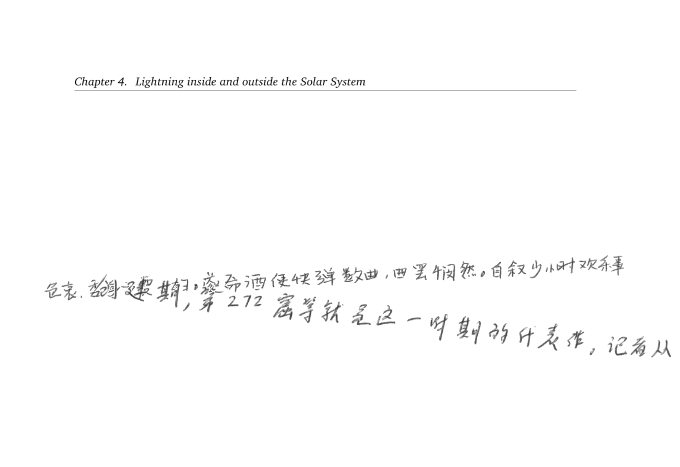 Chapter 4. Lightning inside and outside the Solar System
色衰,命酒使快弹数曲,曲罢悯然。自叙少小时欢乐事
期,第272窟等就是这一时期的代表作。记者从